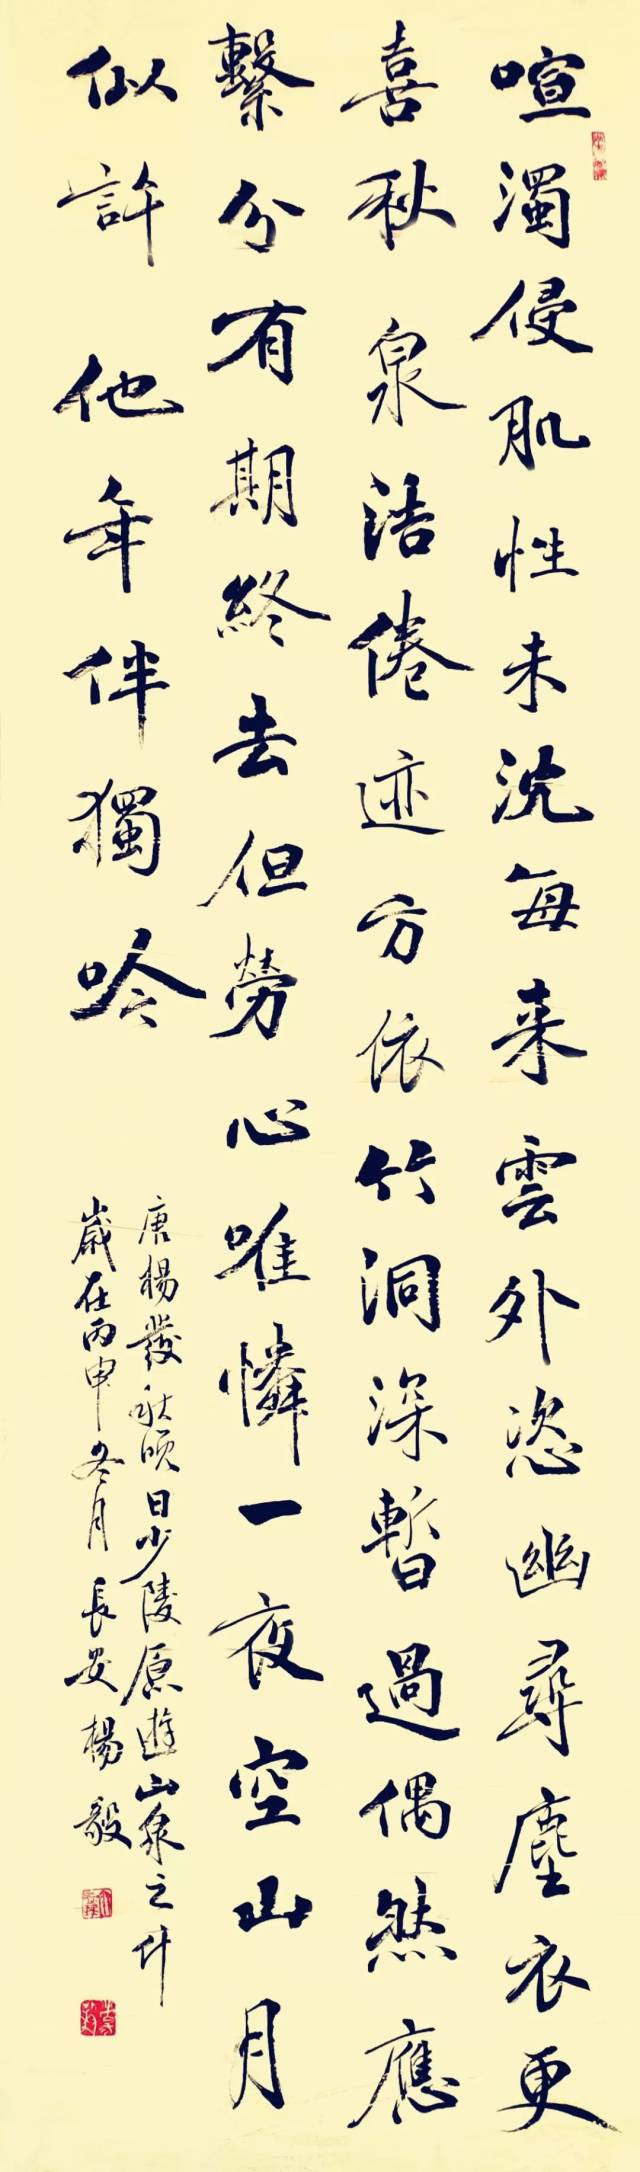 喧濁侵肌性未沈每來雲外恣幽尋塵衣更
喜秋泉潔倦迹方依竹洞深暫過偶然應
繫分有期終去但勞心唯憐一夜空山月
似許他年伴獨吟
唐楊發秋晴日少陵原遊山泉之什
歲在丙申冬月長安楊毅